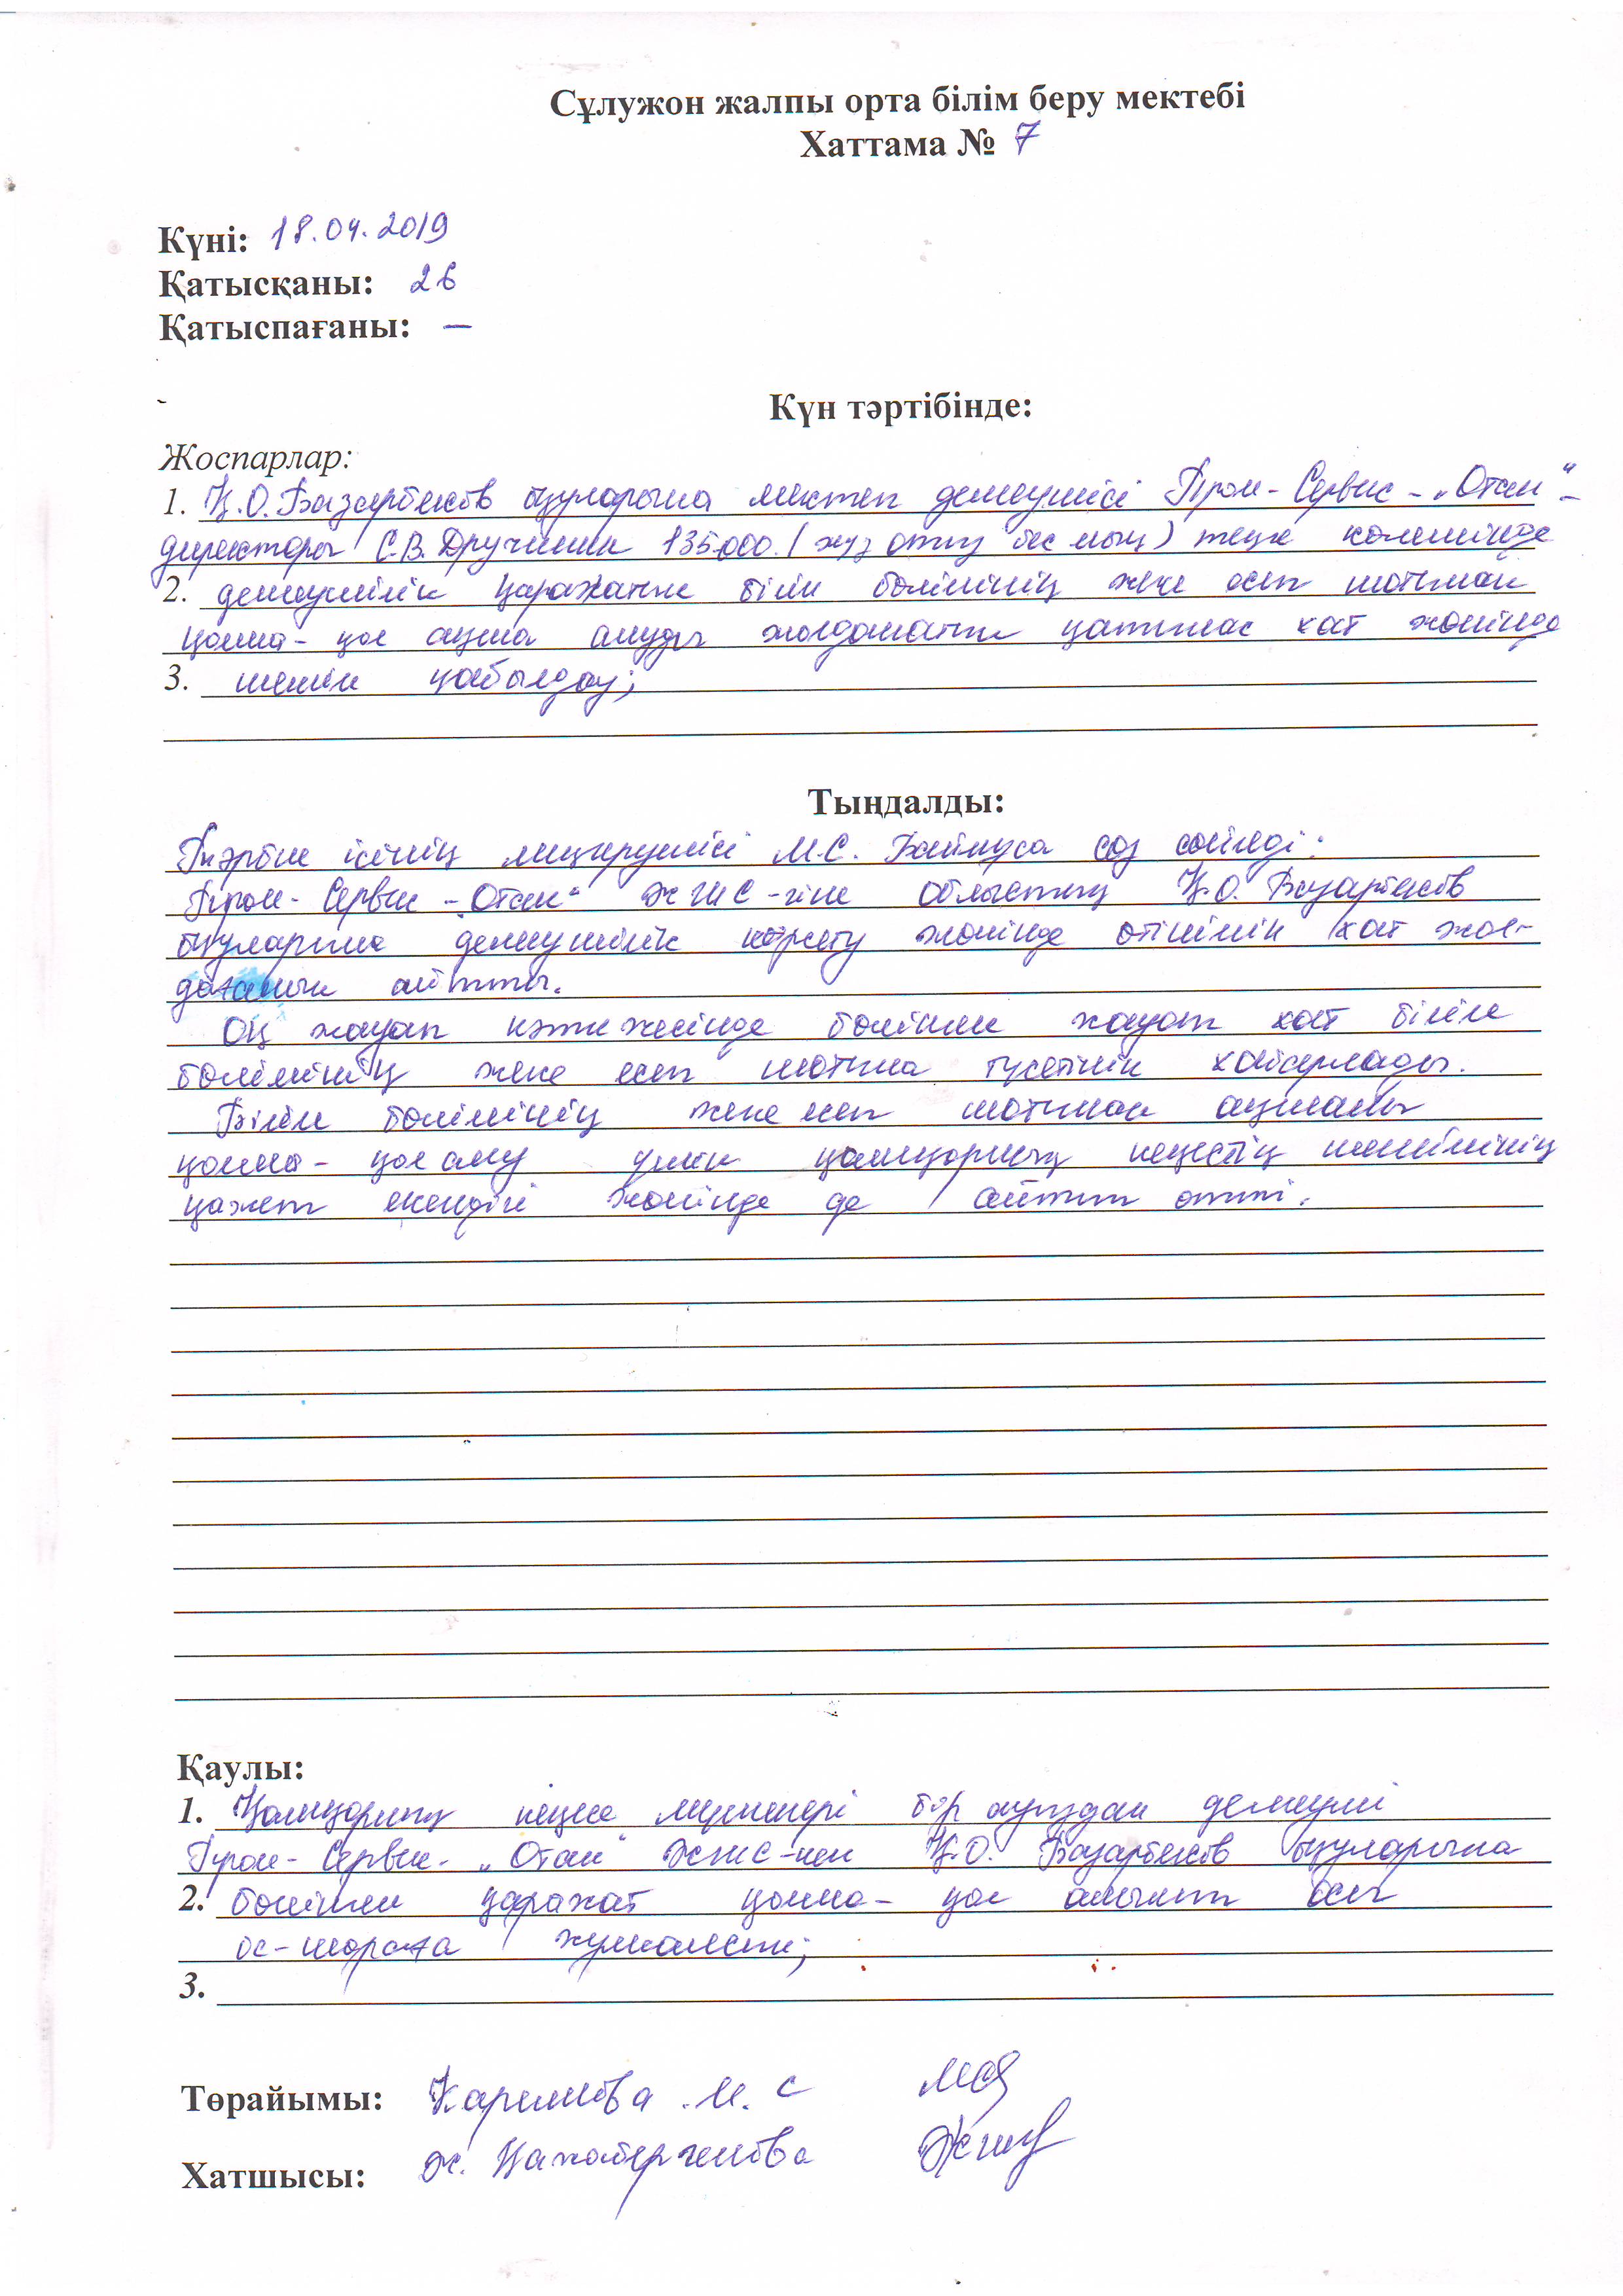 Сұлужон жалпы орта білім беру мектебі
Хаттама № 7
Күні: 18.04.2019
Қатысқаны: 26
Қатыспағаны: —
Күн тәртібінде:
Жоспарлар:
1. Қ.О. Базарбеков оқуларына мектеп демеушісі Пром-Сервис-„Отан“-
директоры С.В. Дручинин 135.000. (жүз отыз бес мың) теңге көлемінде
2. демеушілік қаражатын білім бөлімінің жеке есеп шотынан
қолма-қол ақша алуды жолдаматын қатынас хат жөнінде
3. шешім қабылдау;
Тыңдалды:
Тәрбие ісінің меңгерушісі М.С. сөз сөйледі:
Пром-Сервис-„Отан“ ЖШС-гіне облыстық Қ.О. Базарбеков
оқуларына демеушілік көрсету жөнінде өтінімін хат жол-
дағанын айтты.
Оң жауап нәтижесінде бөлінген жауап хат білім
бөлімінің жеке есеп шотына түсетінін хабарлады.
Білім бөлімінің жеке есеп шотынан ақшаны
қолма-қол алу үшін қамқорлық кеңестің шешімінің
қажет екендігі жөнінде де айтып өтті.
Қаулы:
1. Қамқорлық кеңес мүшелері бір ауыздан демеуші
Пром-Сервис-„Отан“ ЖШС-нен Қ.О. Базарбеков оқуларына
2. бөлінген қаражат қолма-қол алынып осы
іс-шараға жұмсалсын;
3.
Төрайымы: Каримова М.С
Хатшысы: Ж. Қажабергенова